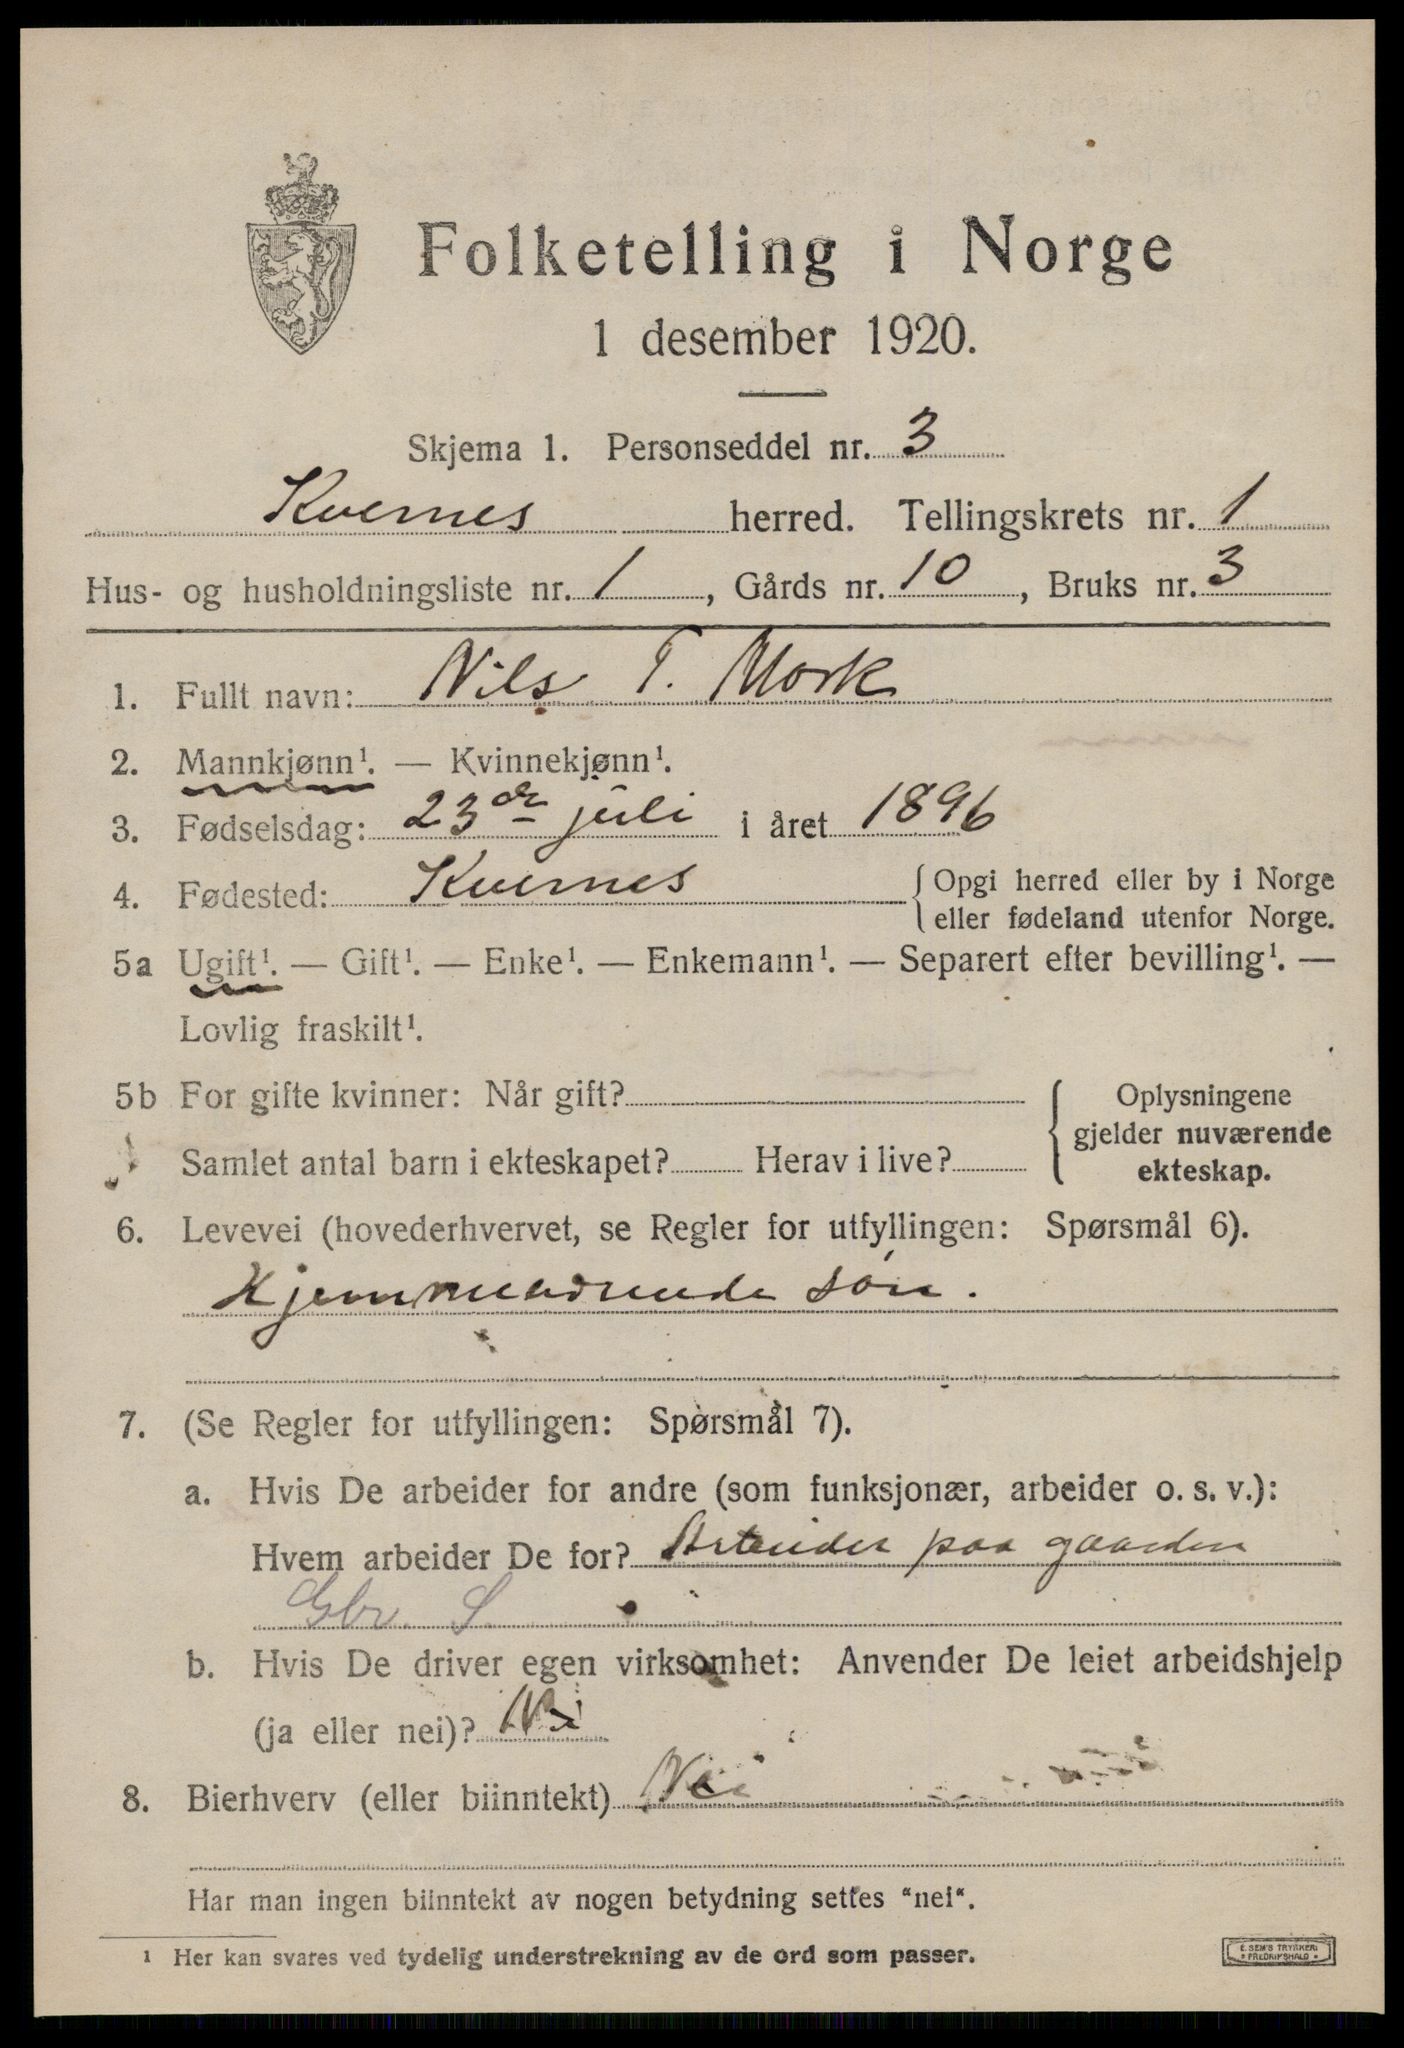 Folketelling i Norge
1 desember 1920.
Skjema 1. Personseddel nr. 3
Kvernes herred. Tellingskrets nr. 1
Hus- og husholdningsliste nr. 1, Gårds nr. 10, Bruks nr. 3
1. Fullt navn: Nils T. Mork
2. Mannkjønn¹. — Kvinnekjønn¹.
3. Fødselsdag: 23de juli i året 1896
4. Fødested: Kvernes {Opgi herred eller by i Norge
eller fødeland utenfor Norge.
5a Ugift¹. — Gift¹. — Enke¹. — Enkemann¹. — Separert efter bevilling¹. —
Lovlig fraskilt¹.
5b For gifte kvinner: Når gift?
Samlet antal barn i ekteskapet? Herav i live?
Oplysningene
gjelder nuværende
ekteskap.
6. Levevei (hovederhvervet, se Regler for utfyllingen: Spørsmål 6).
Hjemmeværende søn.
7. (Se Regler for utfyllingen: Spørsmål 7).
a. Hvis De arbeider for andre (som funksjonær, arbeider o. s. v.):
Hvem arbeider De for? Arbeider paa gaarden
Gbr. S.
b. Hvis De driver egen virksomhet: Anvender De leiet arbeidshjelp
(ja eller nei)? Nei
8. Bierhverv (eller biinntekt) Nei
Har man ingen biinntekt av nogen betydning settes "nei".
¹ Her kan svares ved tydelig understrekning av de ord som passer.
E. SEM'S TRYKKERI
FREDRIKSHALD